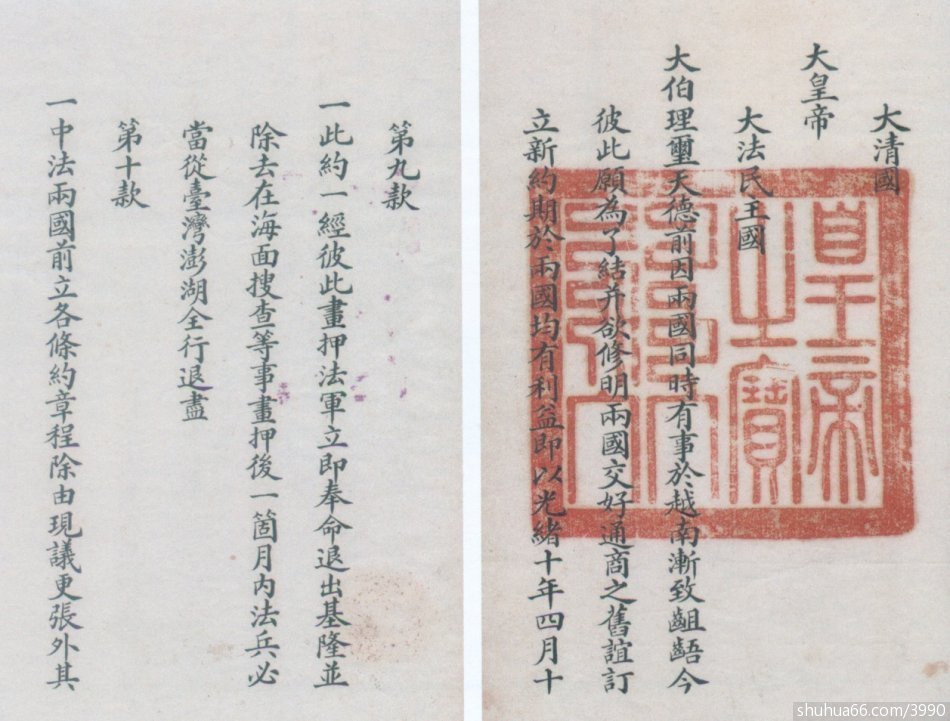 大清國
大皇帝
大法民主國
大伯理璽天德前因兩國同時有事於越南漸致齟齬今
彼此願為了結并欲修明兩國交好通商之舊誼訂
立新約期於兩國均有利益即以光緒十年四月十
皇帝
之寶
第九款
一此約一經彼此畫押法軍立即奉命退出基隆並
除去在海面搜查等事畫押後一箇月內法兵必
當從臺灣澎湖全行退盡
第十款
一中法兩國前立各條約章程除由現議更張外其
shuhua66.com/3990